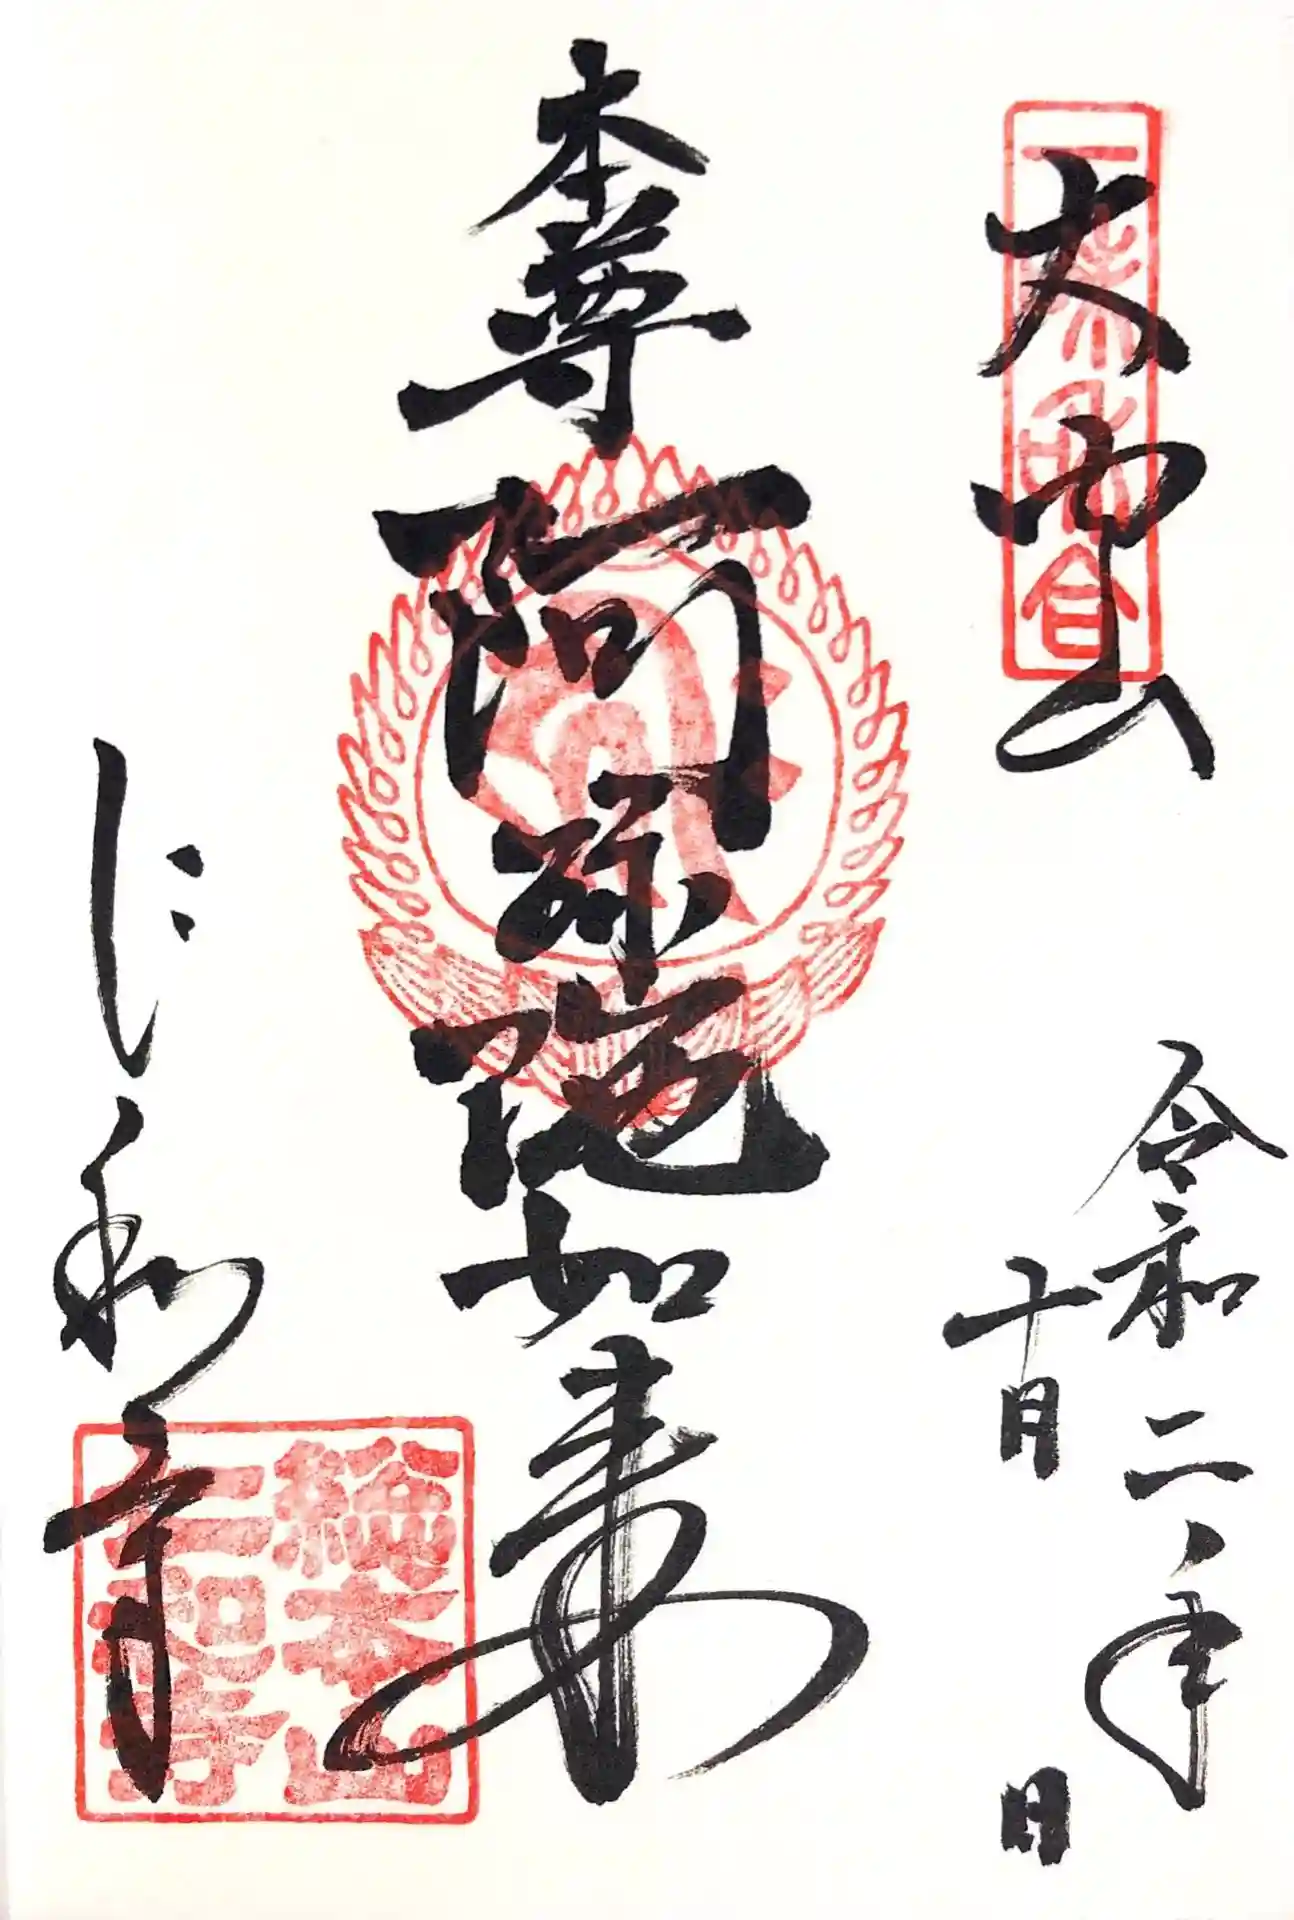 大内山
令和二年
十月 日
本尊阿弥陀如来
仁和寺
総本山
仁和寺